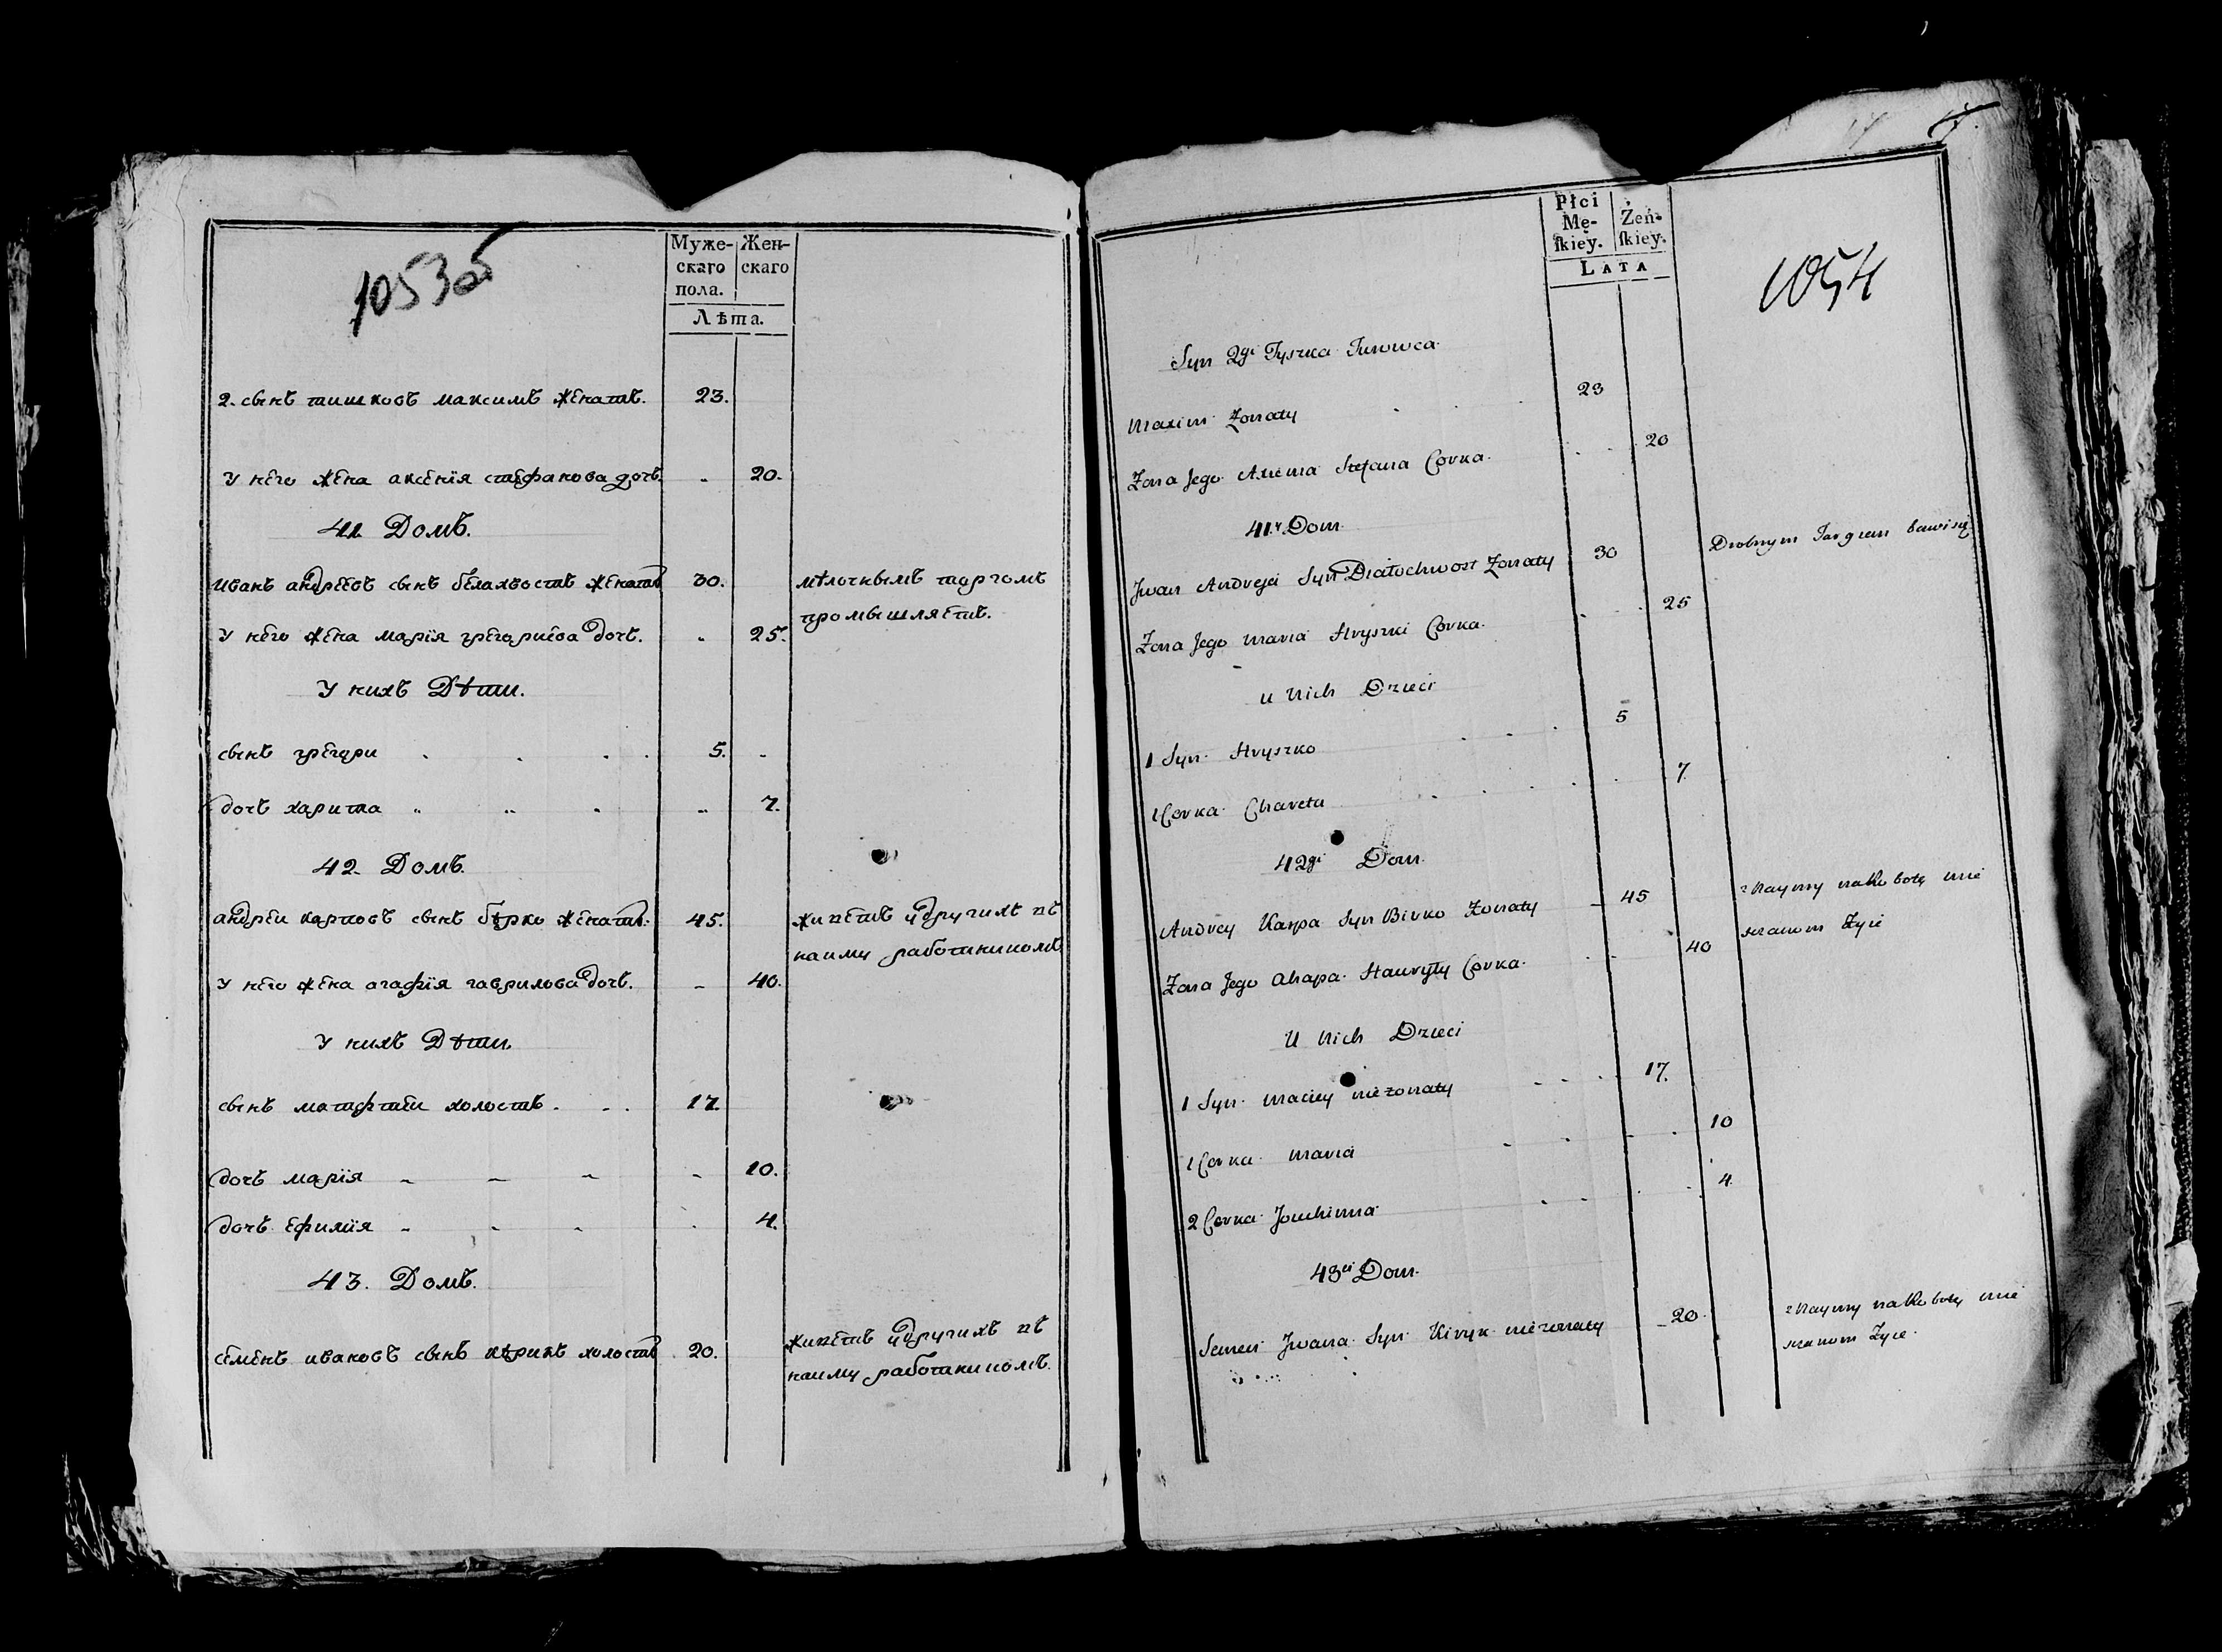 1053об
Муже-скаго пола. Жен-скаго
Лѣта.
2. сынъ тишковъ максимъ женатъ. 23.
У него жена аксения стефанова дочь. „ 20.
41. Домъ.
иванъ андреевъ сынъ белахвостъ женатъ 30. мѣлочнымъ торгомъ
промышляетъ.
У него жена мария грегориева дочь. „ 25.
У нихъ Дѣти.
сынъ грегори 5.
дочь харитка „ 7.
42. Домъ.
андреи карповъ сынъ бѣрко женатъ. 45. живетъ удругихъ въ
найму работникомъ
У него жена агафия гаврилова дочь. 40.
У нихъ Дѣти
сынъ матфтеи холостъ 17.
дочь мария 10.
дочь ефимия 4.
43. Домъ.
семенъ ивановъ сынъ холостъ 20. живетъ удругихъ въ
найму работникомъ.
1054
Płci Mę-skiey. Żeń-skiey.
LATA
Syn 2gi Tyszka Turowca
Maxim Żonaty 23
Żona Jego Axienia Stefana Corka 20
41y Dom
Jwan Andreja Syn Białochwost Żonaty 30 Drobnym Targiem bawi się
Żona Jego Maria Hryszki Corka 25
u Nich Dzieci
1 Syn Hryszko 5
1 Corka Chareta 7
42gi Dom
Andrey Karpa Syn Birko Żonaty 45 z Naymy na Robotę
Żyie
Żona Jego Ahapa Hawryły Corka 40
U Nich Dzieci
1 Syn Maciey nieżonaty 17.
1 Corka Maria 10
2 Corka Jouchimia 4
43ci Dom
Semen Jwana Syn Kiryk nieżonaty 20 z Naymy na Robotę
Żyie